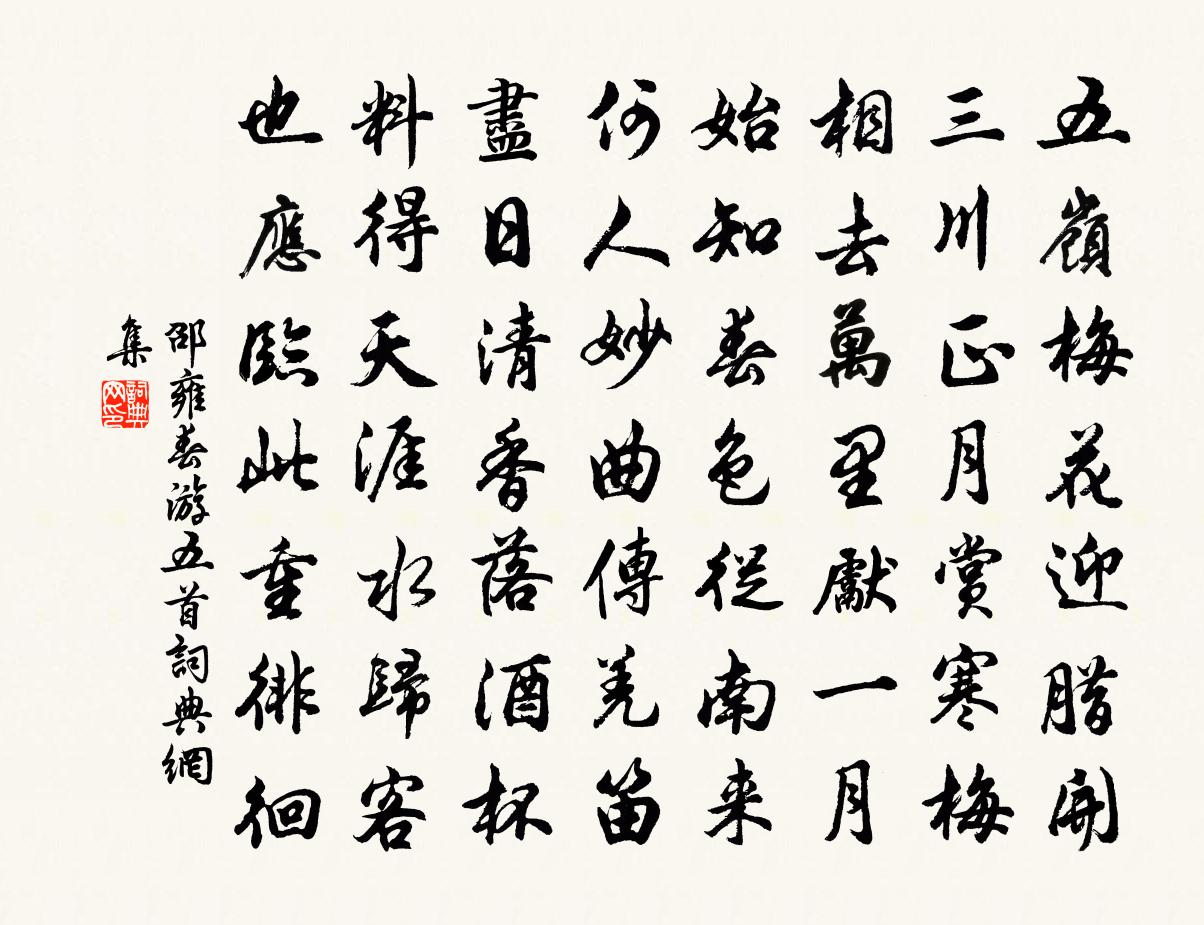 五嶺梅花迎腊開
三川正月賞寒梅
相去萬里獻一月
始知春色從南来
何人妙曲傳羌笛
盡日清香落酒杯
料得天涯水歸客
也應臨此重徘徊
邵雍春游五首詞典網
集
詞典
网印